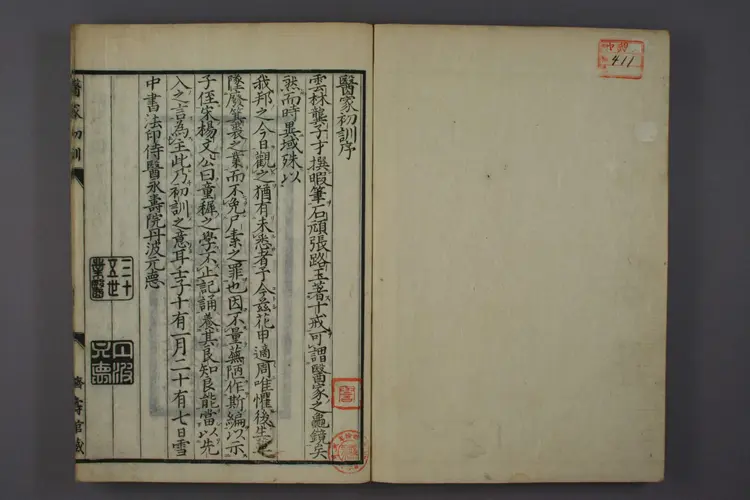 醫家初訓序
雲林龔子才撰暇筆石頑張路玉著十戒可謂醫家之龜鏡矣
然而時異域殊以
我邦之今日觀之猶有未悉者予今玆花甲適周唯懼後生之
墜廢箕裘之業而不免尸素之罪也因不量蕪陋作斯編以示
子侄宋楊文公曰童穉之學不止記誦養其良知良能當以先
入之言為主此乃初訓之意耳壬子十有一月二十有七日雪
中書法印侍醫永壽院丹波元悳
三十五世業醫
丹波元悳
醫家初訓
濟壽館藏
411